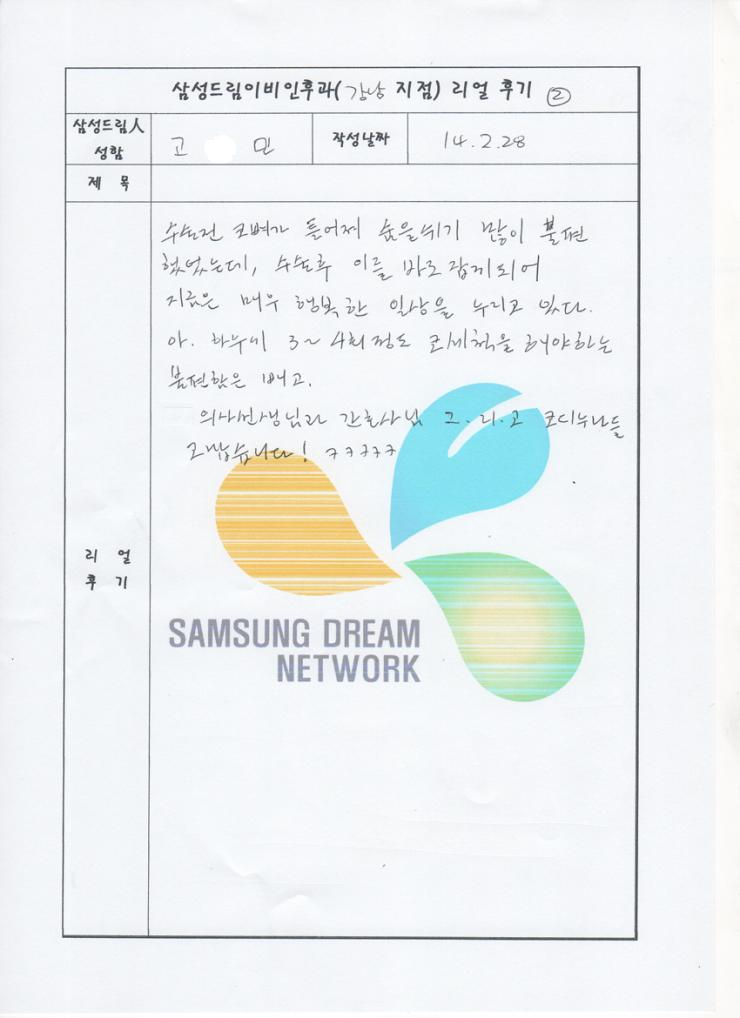 삼성드림이비인후과(강남 지점) 리얼 후기 ②
삼성드림人
성함
고 민
작성날짜
14.2.28
제 목
수술전 코뼈가 틀어져 숨을쉬기 많이 불편
했었는데, 수술후 이를 바로잡게되어
지금은 매우 행복한 일상을 누리고 있다.
아. 하루에 3~4회정도 코세척을 해야하는
불편함은 빼고.
의사선생님과 간호사님 그.리.고 코디누나들
고맙습니다! ㅋㅋㅋㅋㅋ
리 얼
후 기
SAMSUNG DREAM
NETWORK